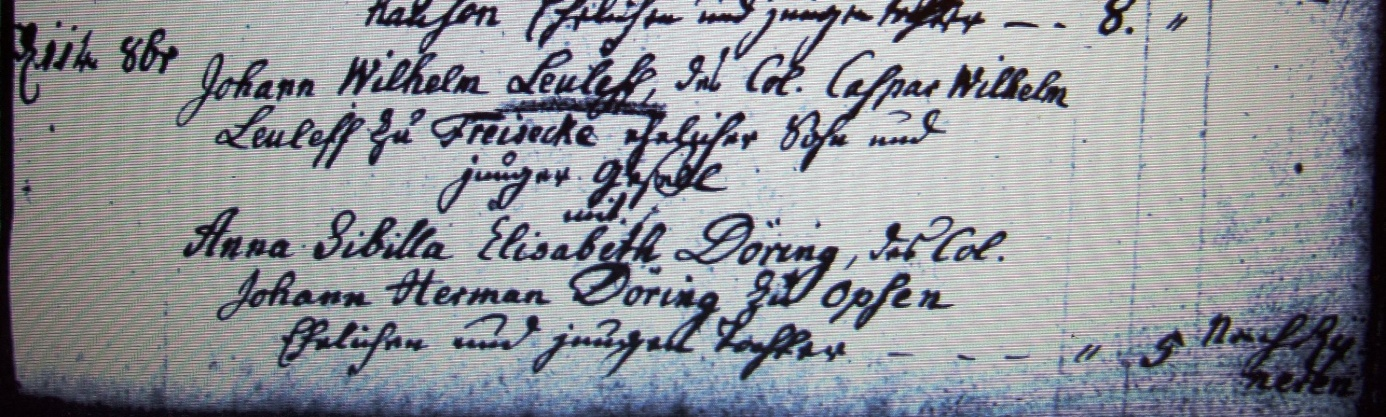 Ehelichen und jungen tochter — - 8. "
8br
Johann Wilhelm Leuleff, des Col. Caspar Wilhelm
Leuleff zu Freisecke ehelicher Sohn und
junger Geselle
mit
Anna Sibilla Elisabeth Döring, des Col.
Johann Herman Döring zu Opsen
Ehelichen und jungen Tochter - - - " 5 Nach Ry
neren